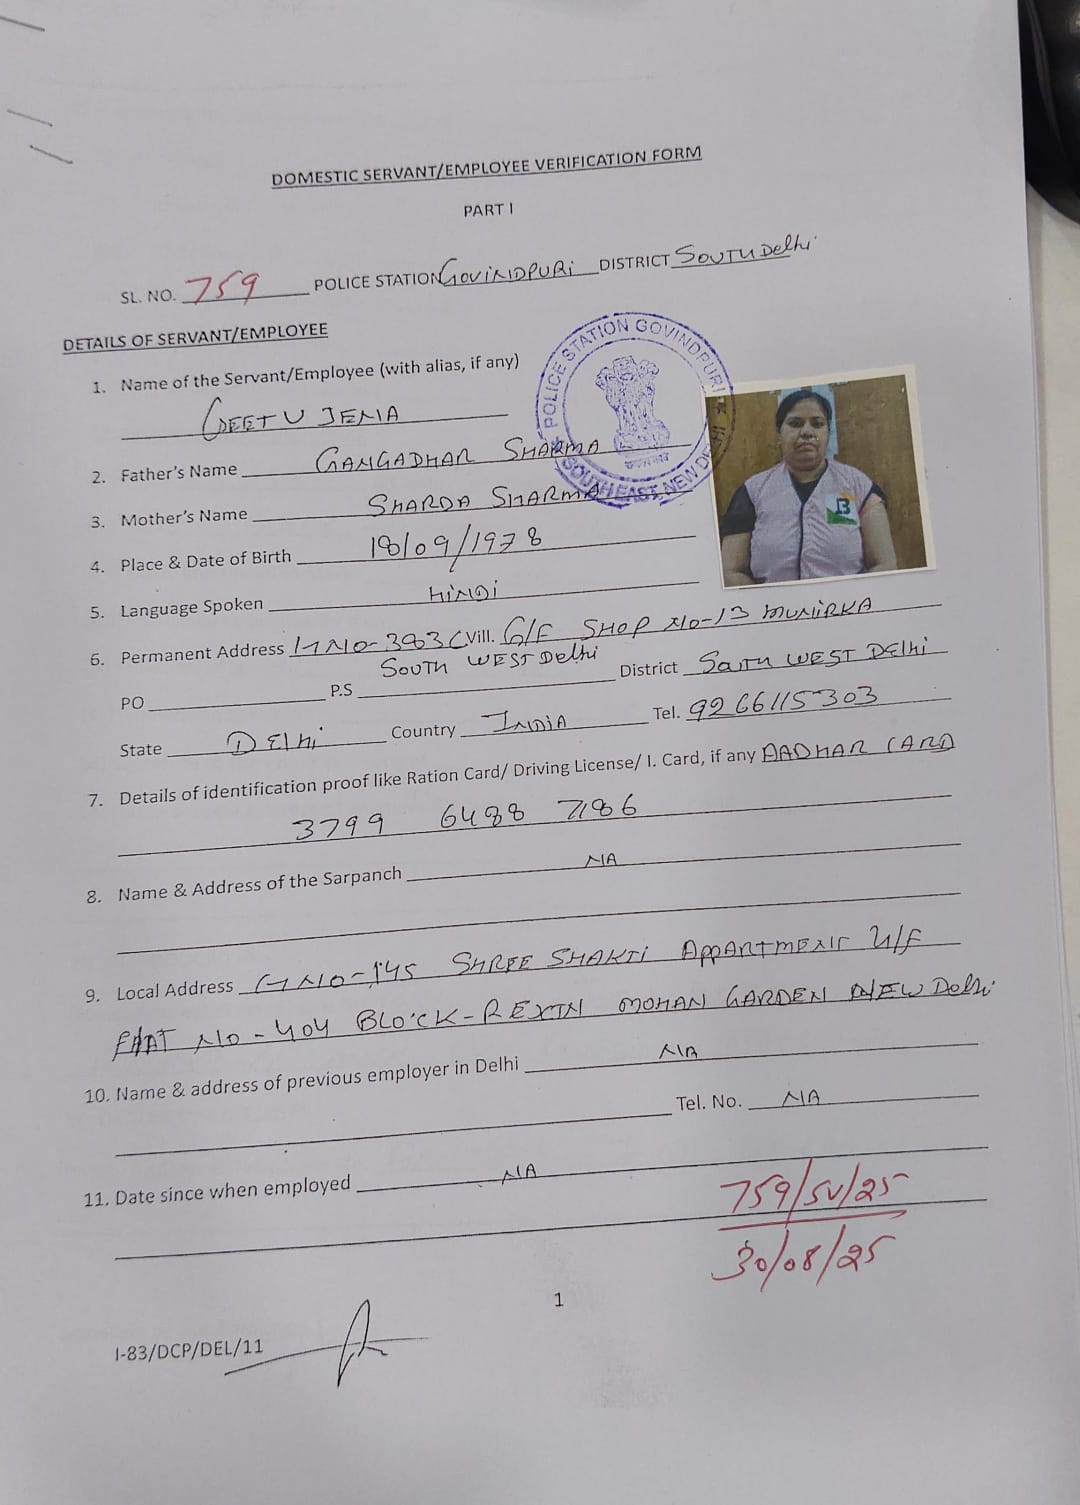 DOMESTIC SERVANT/EMPLOYEE VERIFICATION FORM
PART I
SL. NO. 759 POLICE STATION GOVINDPURI DISTRICT SOUTH Delhi
DETAILS OF SERVANT/EMPLOYEE
POLICE STATION GOVINDPURI
SOUTH EAST, NEW DELHI
1. Name of the Servant/Employee (with alias, if any)
GEETU JENA
2. Father's Name GANGADHAR SHARMA
3. Mother's Name SHARDA SHARMA
4. Place & Date of Birth 18/09/1978
5. Language Spoken HINDI
B
6. Permanent Address H NO-383C Vill. G/F SHOP NO-13 MUNIRKA
SOUTH WEST Delhi
PO P.S District SOUTH WEST DElhi
State DElhi Country INDIA Tel. 9266115303
7. Details of identification proof like Ration Card/ Driving License/ I. Card, if any AADHAR CARD
3799 6488 7186
8. Name & Address of the Sarpanch NA
9. Local Address H NO-145 SHREE SHAKTI APPARTMENT U/F
FlAT NO-404 BLOCK-R EXTN MOHAN GARDEN NEW Delhi
10. Name & address of previous employer in Delhi NA
Tel. No. NA
11. Date since when employed NA
759/SV/25
30/08/25
1
I-83/DCP/DEL/11